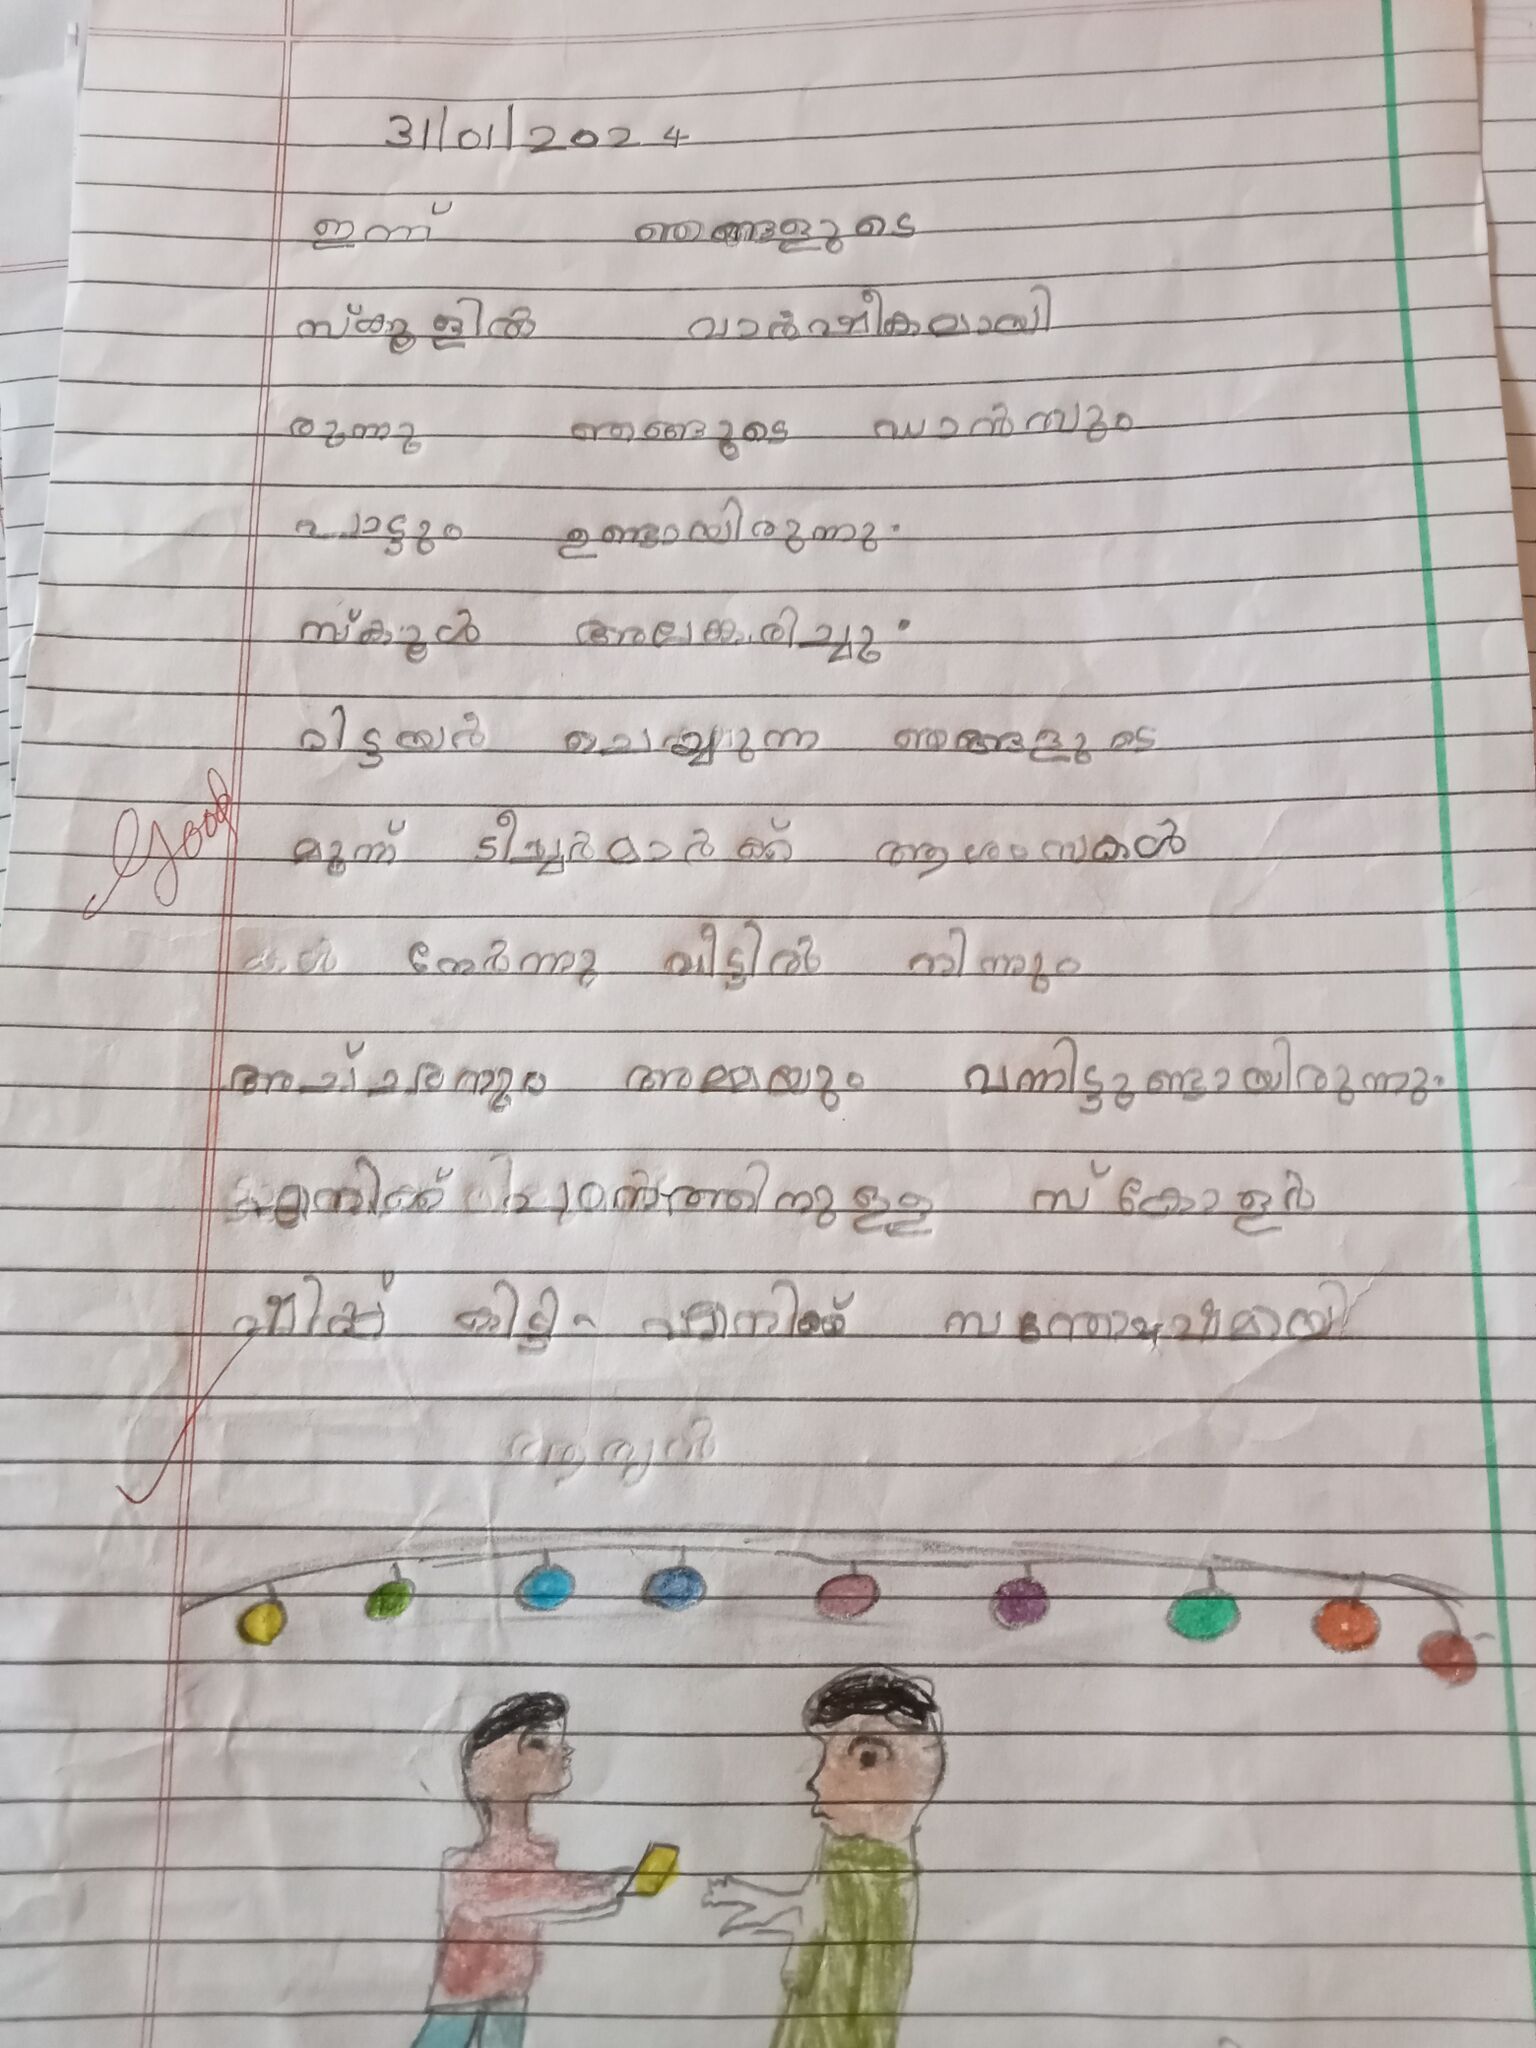 31/01/2024
ഇന്ന് ഞങ്ങളുടെ
സ്കൂളിൽ വാർഷികമായി
രുന്നു ഞങ്ങുടെ ഡാൻസും
പാട്ടും ഉണ്ടായിരുന്നു.
സ്കൂൾ അലങ്കരിച്ചു.
റിട്ടയർ ചെയ്യുന്ന ഞങ്ങളുടെ
Good
മൂന്ന് ടീച്ചർമാർക്ക് ആശംസകൾ
നേർന്നു വീട്ടിൽ നിന്നും
അച്ചനും അമ്മയും വന്നിട്ടുണ്ടായിരുന്നു.
എനിക്ക് സ്കോളർ
ഷിപ്പ് കിട്ടി എനിക്ക് സന്തോഷമായി